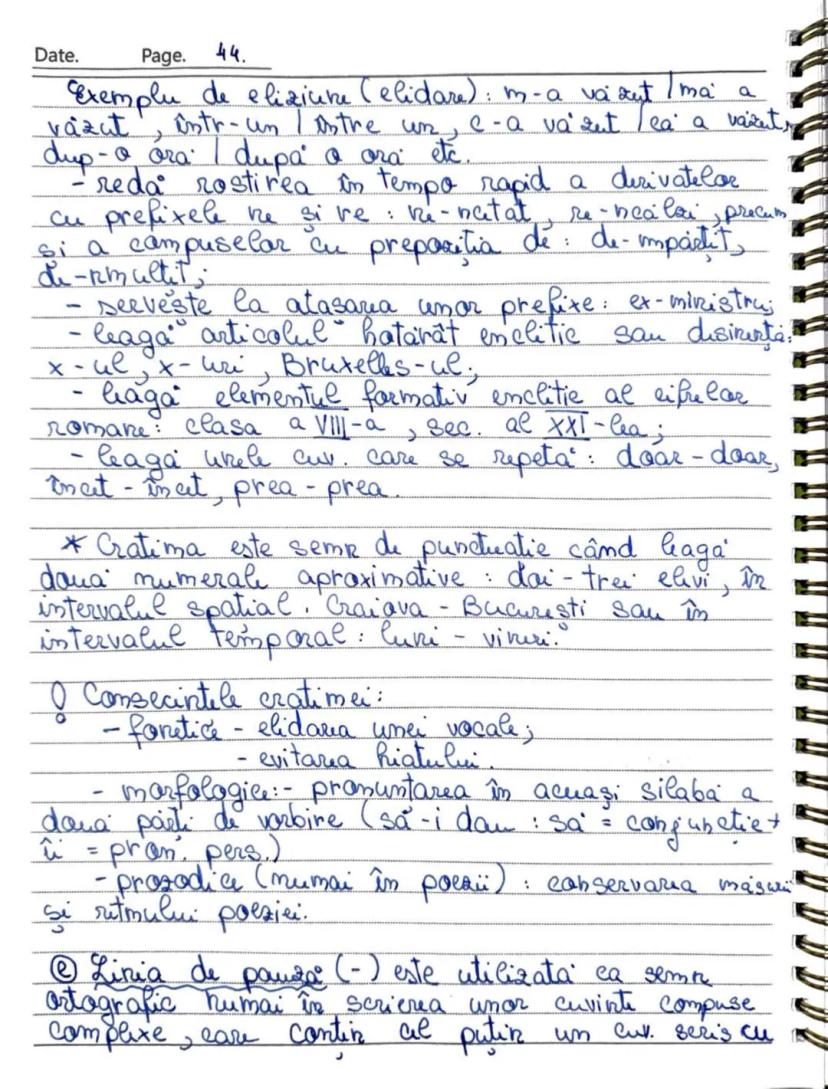 Date. Page. 44.
Exemplu de eliziune (elidare): m-a văzut / mă a
văzut, într-un / între un, c-a văzut / că a văzut,
dup-o oră / după o oră etc.
- redă rostirea în tempo rapid a derivatelor
cu prefixele ne și re: ne-ncetat, re-ncălzi, precum
și a compuselor cu prepoziția de: de-mpărțit,
de-nmulțit;
- servește la atașarea unor prefixe: ex-ministru;
- leagă articolul hotărât enclitic sau desinența:
x-ul, x-uri, Bruxelles-ul;
- leagă elementul formativ enclitic al cifrelor
romane: clasa a VIII-a, sec. al XXI-lea;
- leagă unele cuv. care se repetă: doar-doar,
încet-încet, prea-prea.
* Cratima este semn de punctuație când leagă
două numerale aproximative: doi-trei elevi, în
intervalul spațial. Craiova - București sau în
intervalul temporal: luni - vineri.
! Consecințele cratimei:
- fonetice - elidarea unei vocale;
- evitarea hiatului.
- morfologice: - pronunțarea în aceași silabă a
două părți de vorbire (să-i dau: să = conjuncție +
îi = pron. pers.)
- prozodice (numai în poezii): conservarea măsurii
și ritmului poeziei.
(e) Linia de pauză (-) este utilizată ca semn
ortografic numai în scrierea unor cuvinte compuse
complexe, care conțin cel puțin un cuv. scris cu